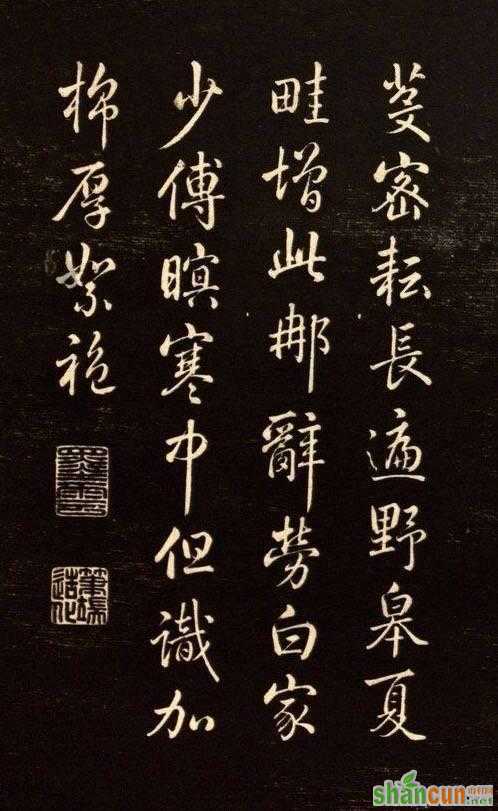 芟密耘長遍野皋夏
畦增此那辭勞白家
少傅暝寒中但識加
棉厚絮袍
筆端造化
shancun
.net